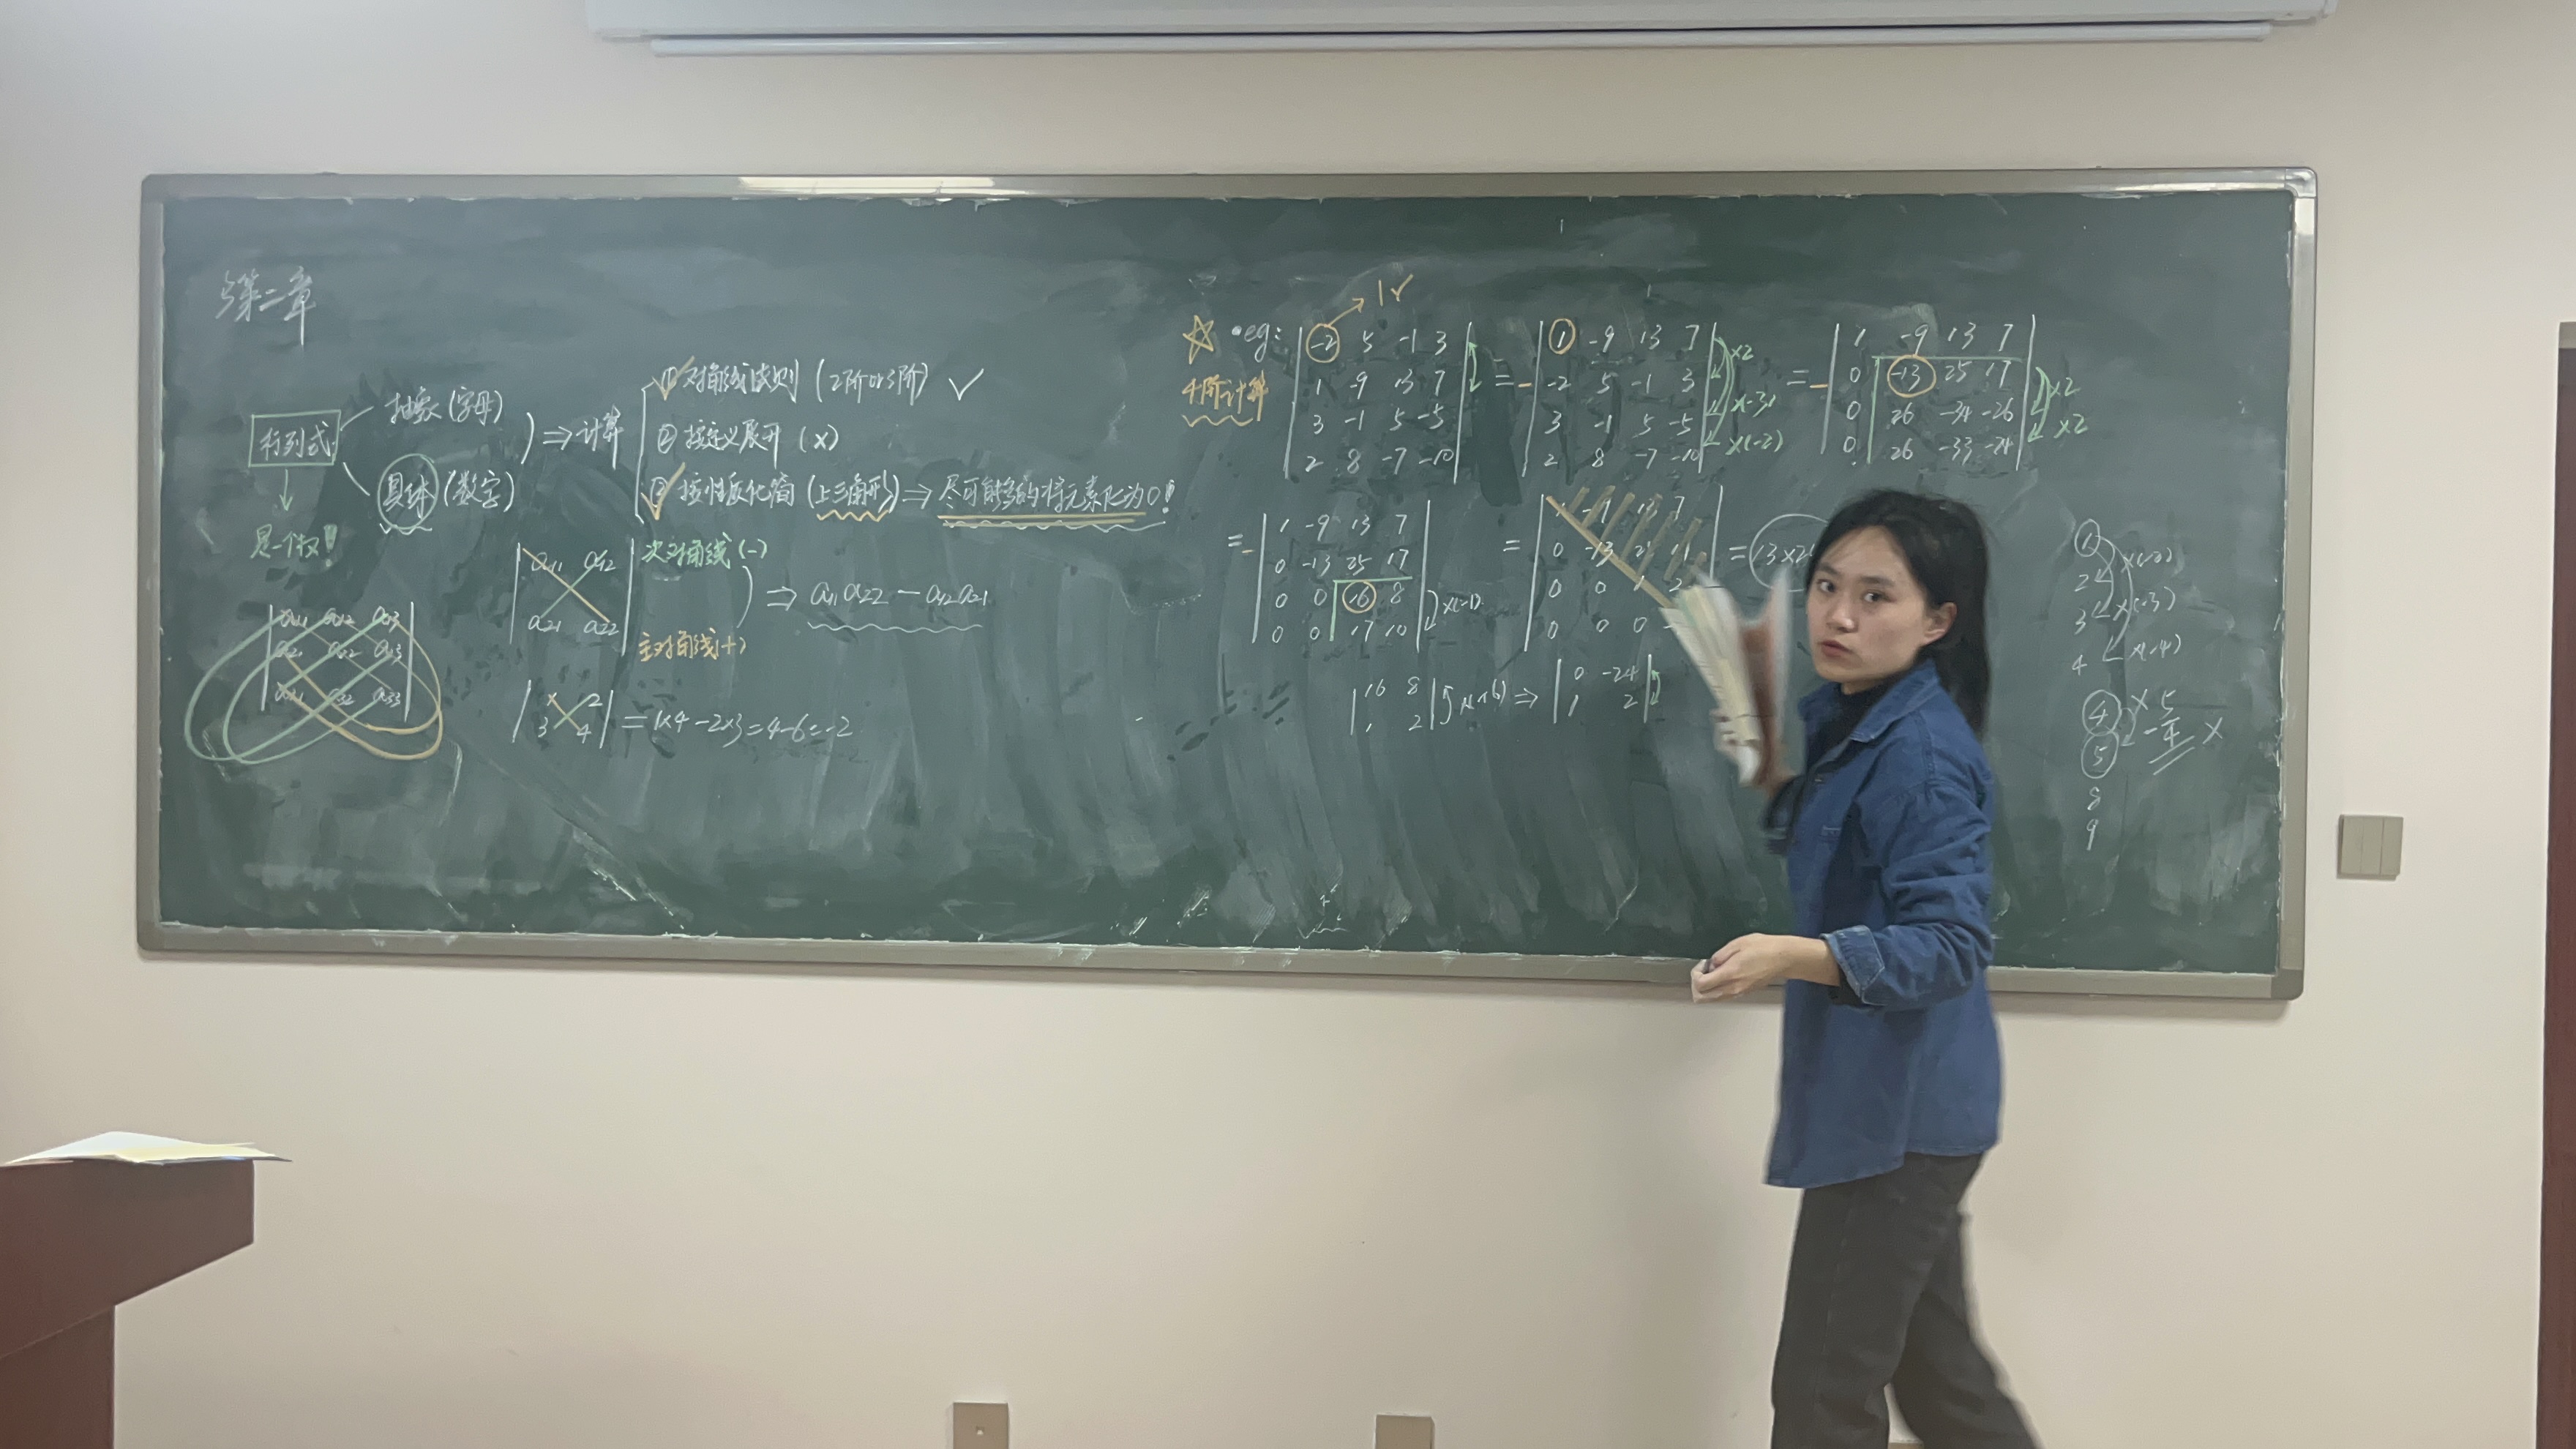 第二章
行列式
抽象(字母)
具体(数字)
⇒计算
是一个数!
① 对角线法则 (2阶or3阶) ✓
② 按定义展开 (×)
③ 按性质化简 (上三角形) ⇒ 尽可能多的将元素化为0!
a11 a12
a21 a22
次对角线(-)
主对角线(+)
⇒ a11a22 - a12a21
a11 a12 a13
a21 a22 a23
a31 a32 a33
1 2
3 4
= 1×4-2×3=4-6=-2
☆ •eg:
4阶计算
→1✓
-2 5 -1 3
1 -9 13 7
3 -1 5 -5
2 8 -7 -10
= -
1 -9 13 7
-2 5 -1 3
3 -1 5 -5
2 8 -7 -10
×2
×(-3)
×(-2)
= -
1 -9 13 7
0 -13 25 17
0 26 -34 -26
0 26 -33 -24
×2
×2
= -
1 -9 13 7
0 -13 25 17
0 0 16 8
0 0 17 10
×(-1)
=
1 -9 13 7
0 -13 25 17
0 0 1 2
0 0 0
= 13×2
16 8
1 2
⇒
0 -24
1 2
1
2
3
4
×(-2)
×(-3)
×(-4)
4
5
8
9
× -5/4 ×